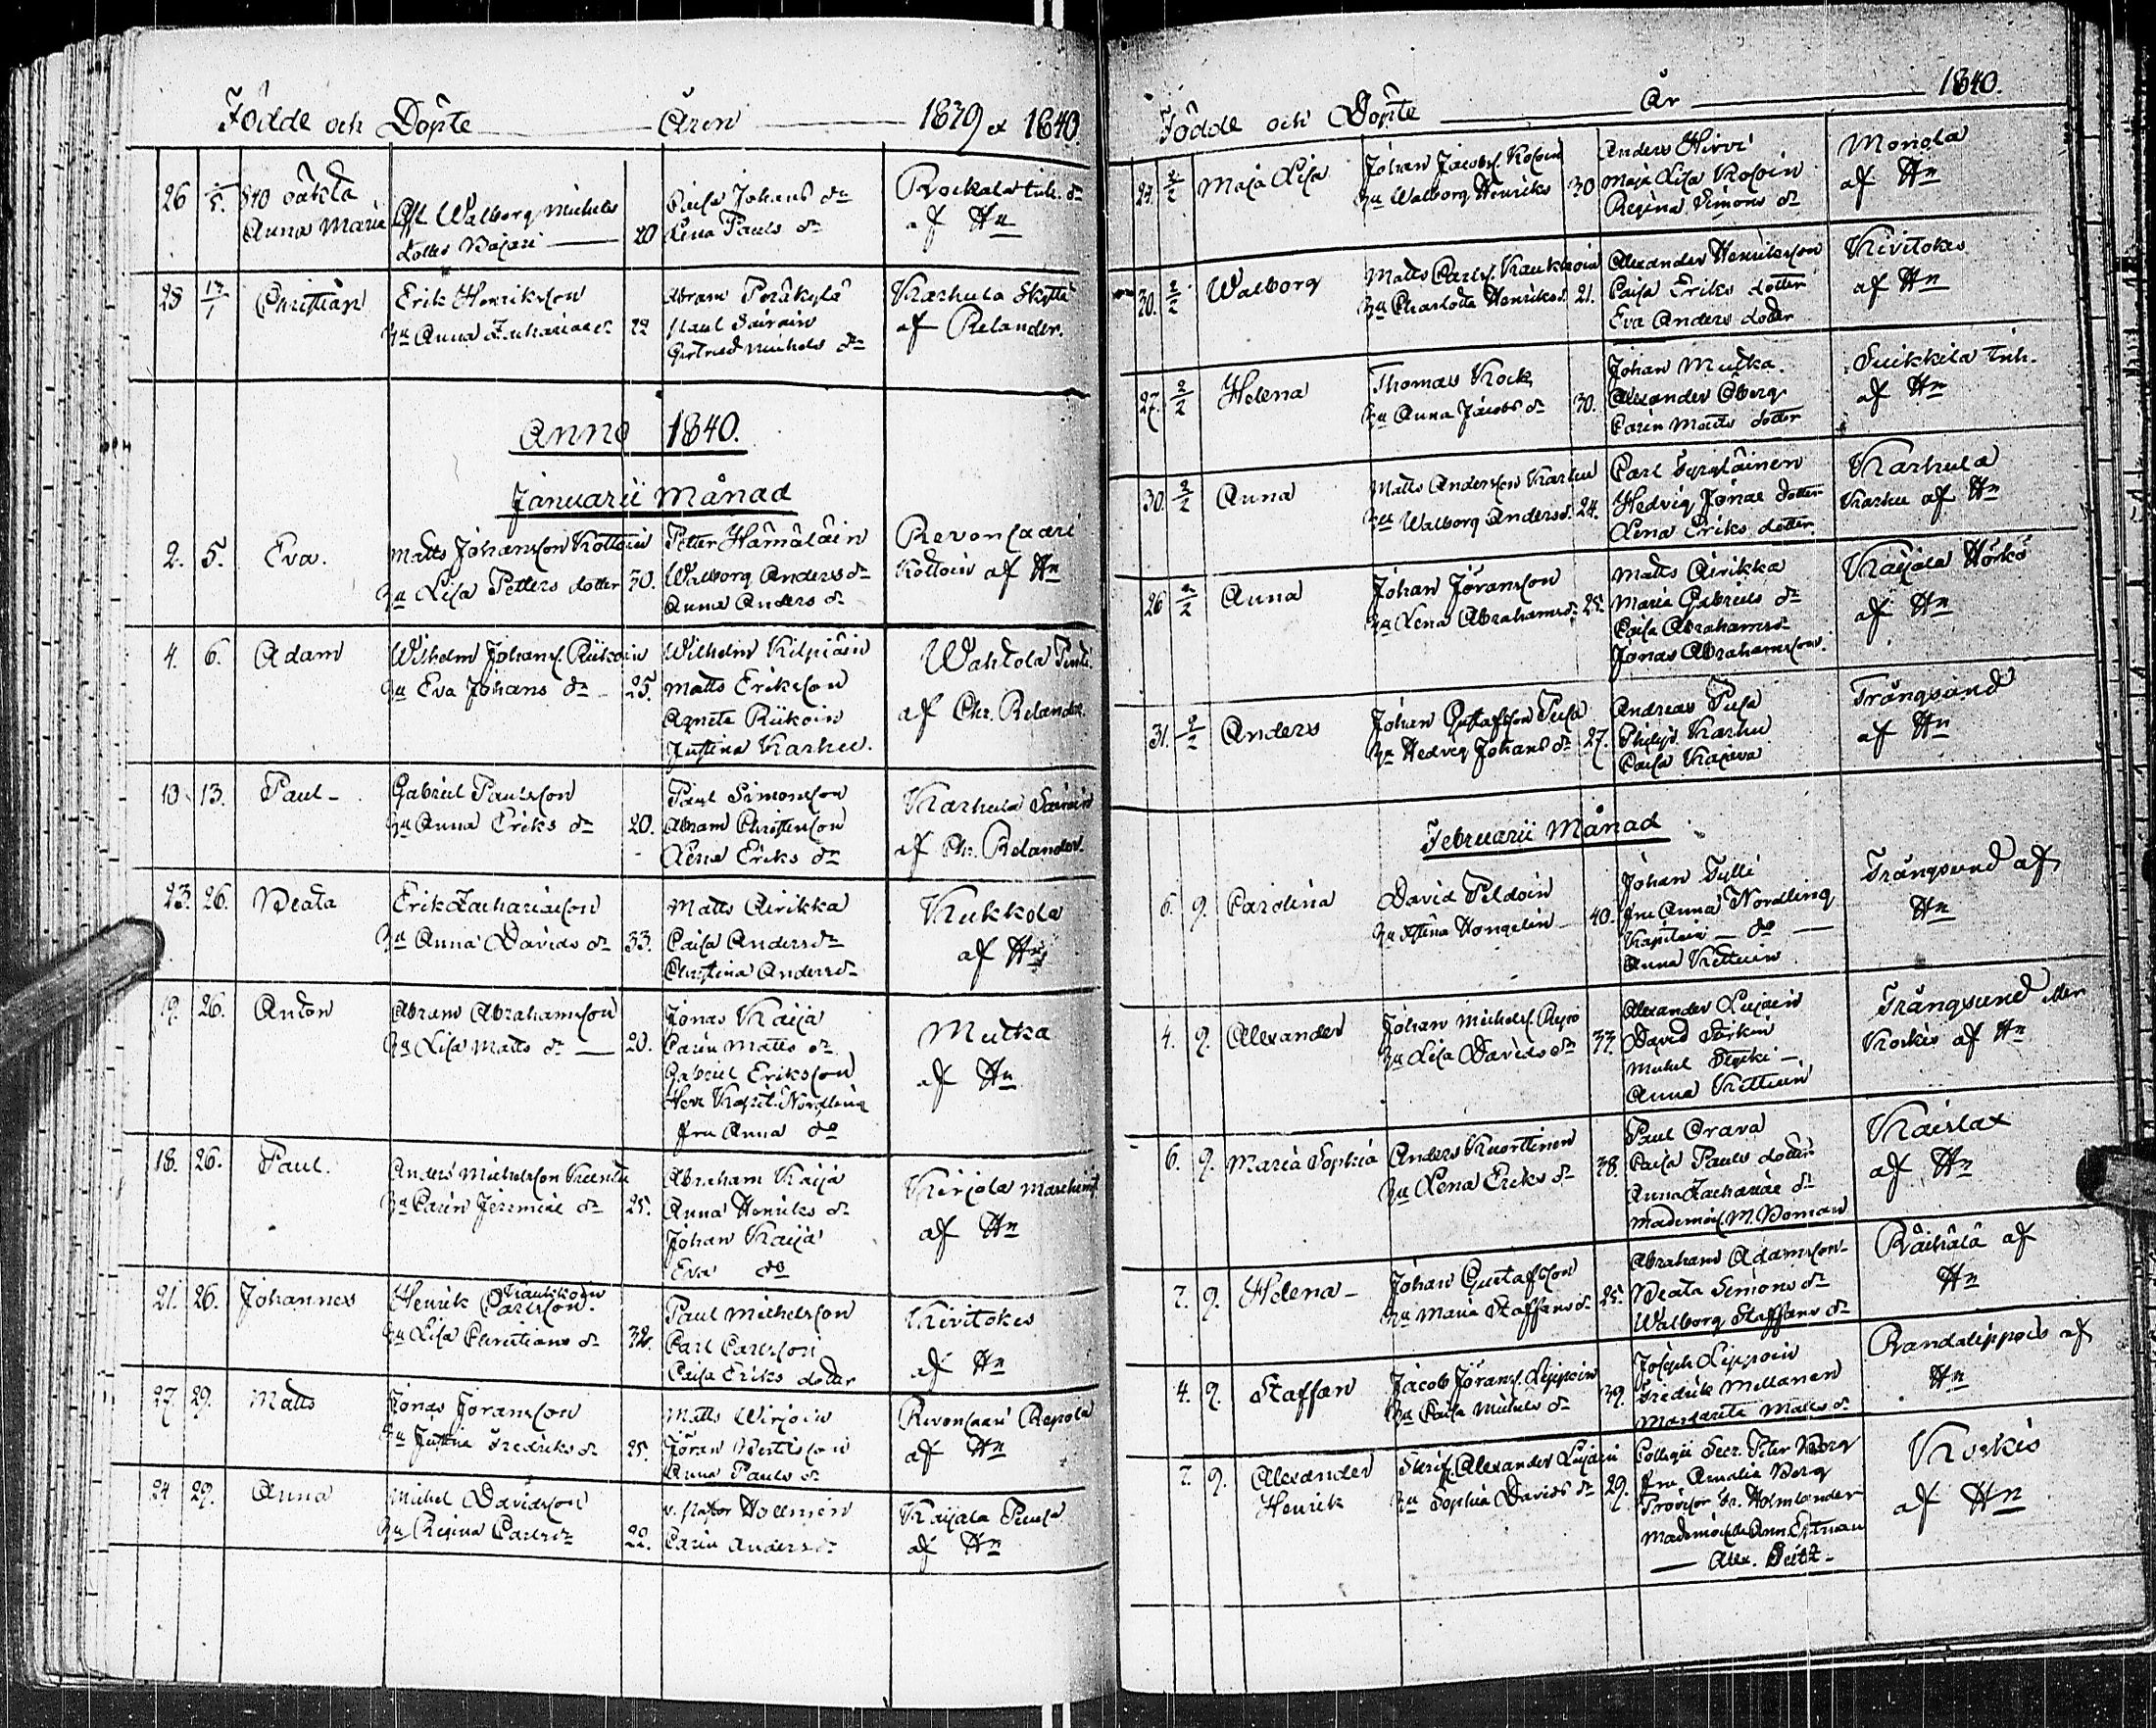 Födde och Döpte Åren 1839 et 1840.
26 Anna Maria Walborg Michels 20 Caisa Johans dr Lena Pauls dr af Hn
28 Christian Erik Henrikson Abram Peräkylä Karhula Skyttä
hu Anna Zachariae dr 22 Paul Sairain af Relander.
Gertrud Michels dr
Anno 1840.
Januarii Månad
2. 5. Eva. Matts Johansson Kottoin Petter Hämäläin Revonsaari
hu Lisa Petters dotter 30. Walborg Anders dr Kottoin af Hn
Anna Anders dr
4. 6. Adam Wilhelm Johans. Riikoin Wilhelm Kilpiäin Wahtola
hu Eva Johans dr 25. Matts Erikson af Chr. Relander.
Agneta Riikoin
Justina Karhu.
10. 13. Paul Gabriel Paulsson Paul Simonson Karhula Sairain
hu Anna Eriks dr 20. Abram Christerson af Chr. Relander.
Lena Eriks dr
23. 26. Beata Erik Zachariason Matts Airikka Kukkola
hu Anna Davids dr 33. Caisa Anders dr af Hn
Christina Anders dr
19. 26. Anton Abram Abrahamson Jonas Kaija Mutka
hu Lisa Matts dr 20. Carin Matts dr af Hn
Gabriel Erikson
Herr Kapit. Nordling
fru Anna do
18. 26. Paul. Anders Michelson Abraham Kaija Kirjola
hu Carin Jeremiae dr 25. Anna Henriks dr af Hn
Johan Kaija
Eva do
21. 26. Johannes Henrik Carlsson Kaukkoin Paul Michelson Kivitokes
hu Lisa Christians dr 32. Carl Carlsson af Hn
Caisa Eriks dotter
27. 29. Matts Jonas Joranson Matts Wirjoin Revonsaari Repola
hu Justina Fredriks dr 25. Jöran Bertilson af Hn
Anna Pauls dr
24 29. Anna Michel Davidson Hollmen Kaijala
hu Regina Carls dr 22. Carin Anders dr af Hn
Födde och Döpte År 1840.
27. 2/2 Maja Lisa Johan Jacobs. Kosoin Anders Hirvi Monola
hu Walborg Henriks 30 Maja Lisa Kosoin af Hn
Regina Simons dr
30. 2/2 Walborg Matts Carls. Kaukkoin Alexander Henrikson Kivitokes
hu Charlotta Henriks d. 21. Caisa Eriks dotter af Hn
Eva Anders dotter
27. 2/2 Helena Thomas Kock Johan Mutka. Suikkila
hu Anna Jacobs dr 30. Alexander Åberg af Hn
Carin Matts dotter
30. 2/2 Anna Matts Anderson Karhu Carl Syrjäinen Karhula
hu Walborg Anders d. 24. Hedvig Jonae dotter Karhu af Hn
Lena Eriks dotter
26 2/2 Anna Johan Jöranson Matts Airikka Kaijala Hörkö
hu Lena Abrahams d. 25. Maria Gabriels dr af Hn
Caisa Abrahams dr
Jonas Abrahamson.
31. 2/2 Anders Johan Gustafson Pusa Andreas Pusa Trångsund
hu Hedvig Johans dr 27. Philip Karhu af Hn
Caisa Kajava
Februarii Månad
6. 9. Carolina David Peldoin Johan Tylli Trångsund af
hu Stina Hongelin 40. fru Anna Nordling Hn
Kapitain do
Anna Kettuin
4. 9. Alexander Johan Michels. Repo Alexander Lujain Trångsund eller
hu Lisa Davids dr 33. David Parkin Koskis af Hn
Michel
Anna Kettuin
6. 9. Maria Sophia Anders Kuorttinen Paul Orava Kaislax
hu Lena Eriks dr 38. Caisa Pauls dotter af Hn
Anna Zachariae dr
Mademois. M. Boman
7. 9. Helena Johan Gustafson Abraham Adamson Räihälä af
hu Maria Staffans dr 25. Beata Simons dr Hn
Walborg Staffans dr
4. 9. Staffan Jacob Jörans. Lippoin Joseph Lippoin Randalippois af
hu Caisa Michels dr 39. Fredrik Mellanen Hn
Margareta Matts dr
7. 9. Alexander Skrif. Alexander Lujain Collegii Secr. Peter Borg Koskis
Henrik hu Sophia Davids dr 29. fru Amalia Borg af Hn
Provisor Holmlander
Mademoiselle Ann.
Alex.